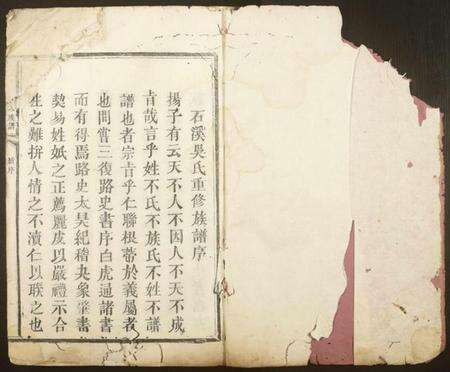 石溪吳氏重修族譜序
揚子有云天不人不因人不天不成
旨哉言乎姓不氏不族氏不姓不譜
譜也者宗旨乎仁聯根蒂於義屬者
也間嘗三復路史書序白虎通諸書
而有得焉路史太昊紀稽夬象肇書
契易姓妣之正薦麗皮以嚴禮示合
生之難拚人情之不瀆仁以联之也
族譜
序